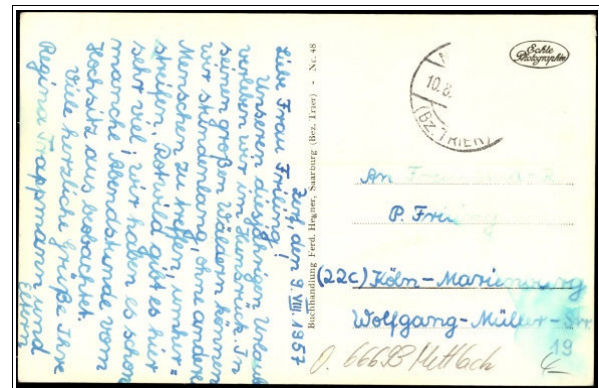 Zerf, den 9. VIII. 1957
Liebe Frau Frieling!
Unseren diesjährigen Urlaub
verleben wir im Hunsrück. In
seinen großen Wäldern können
wir stundenlang, ohne andere
Menschen zu treffen, umher=
streifen. Rotwild gibt es hier
sehr viel; wir haben es schon
manche Abendstunde vom
Hochsitz aus beobachtet.
Viele herzliche Grüße Ihre
Regina Trappmann und
Eltern
Buchhandlung Ferd. Hegner, Saarburg (Bez. Trier) - Nr. 48
10.8.
(BZ. TRIER)
Echte
Photographie
An
P.
(22c) Köln-Marienburg
Wolfgang-Müller-Str.
19
66693 Mettlach